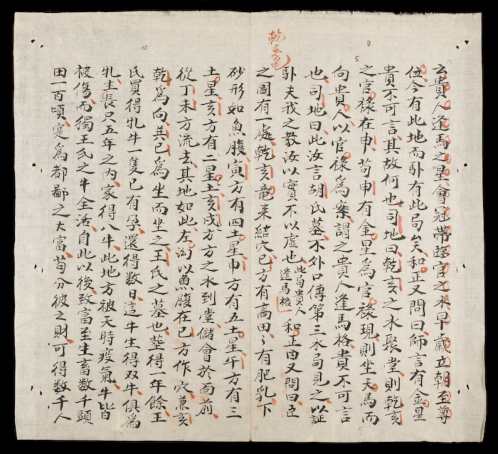 云貴人逢馬之星會冠帶臨官之未早歲立朝至尊
伍今有此地而卦有此局矣和正又問曰師言有金星
貴不可言其故何也司地曰乾亥之水聚堂則乾亥
之官祿在申苟申有金星為官祿現則坐天馬而
向貴人以官祿為案謂之貴人逢馬格貴不可言
也司地曰此汝言胡氏墓水外口傳第三水局見之以証
卦夫我之教汝以實不以虛也此局貴人逢馬格和正曰又問曰丘
之圖有一處乾亥竜來結穴巳方有高田々有肥乳下
砂形如魚腹寅方有四土星巾方有五土星午方有三
土星亥方有二星土亥戌方方之水到堂儲會於面前
從丁未方流去其地如此左泻以魚腹在巳方作穴兼亥
乾為向其巳為坐而坐之王氏之墓也塟得一年餘王
氏買得牝牛一隻已有孕還得数日這牛生得双牛俱為
牝主長只五年之內家得八牛此地方被天時疫氣牛皆
被傷而獨王氏之牛全活自此以後致富至生畜数千頭
田一百頃寔為都鄙之大富苟分彼之財可得数千人